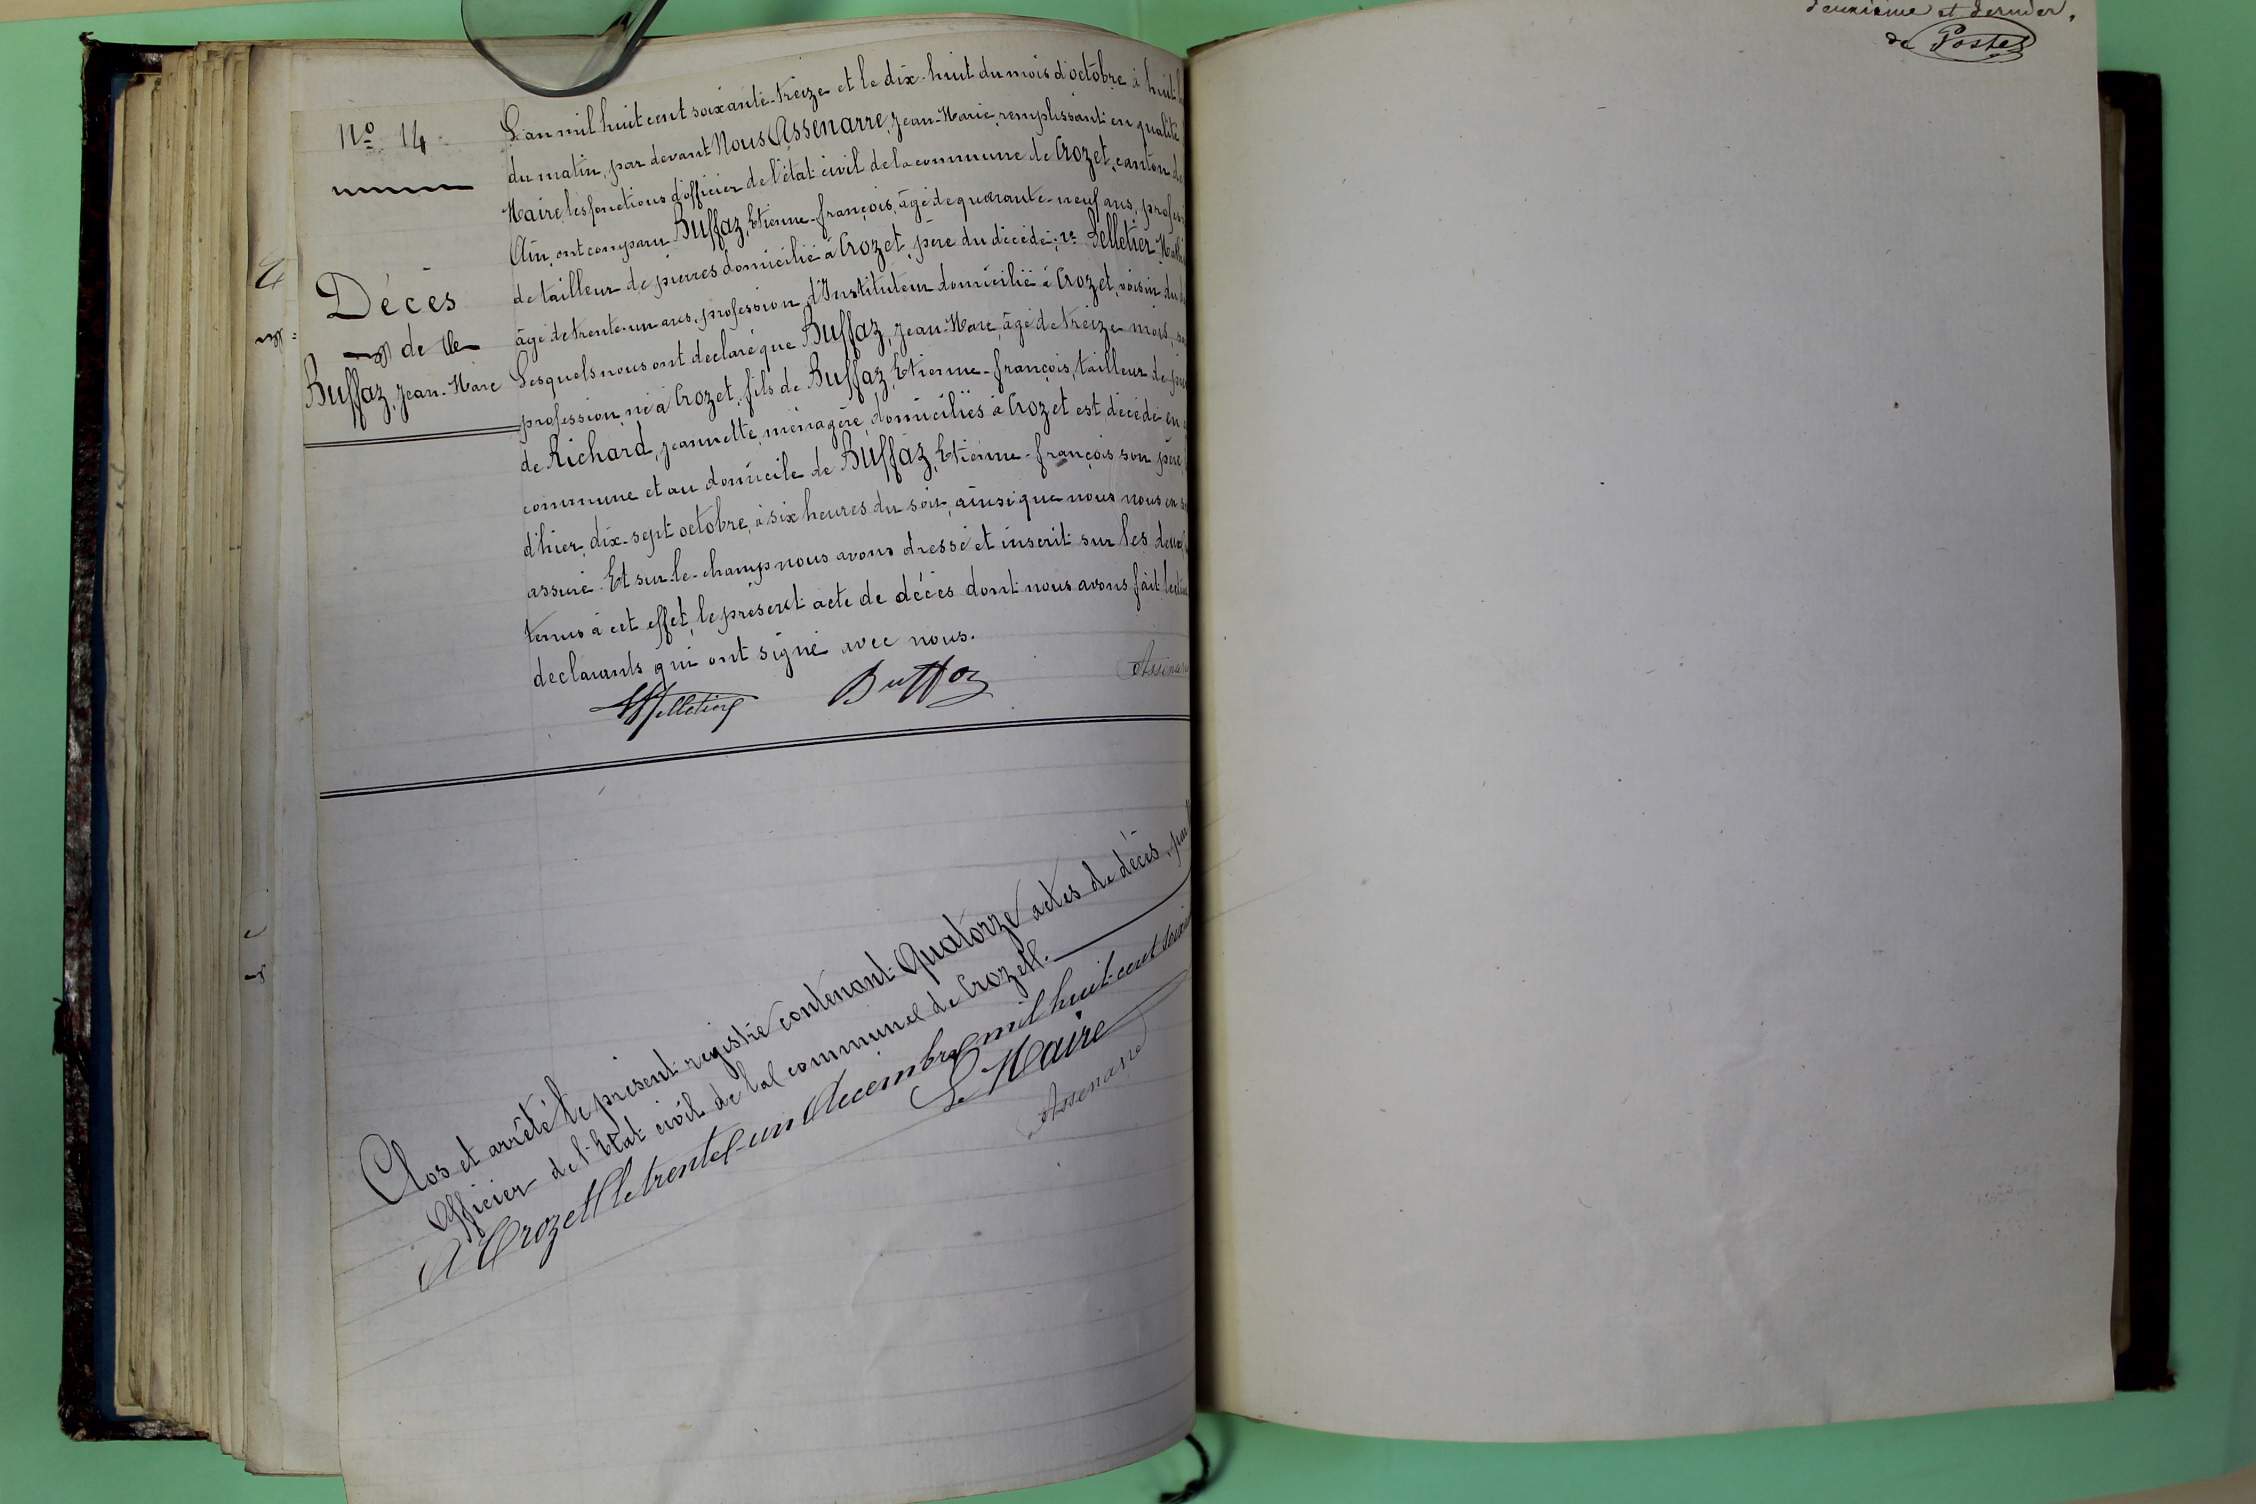 deuxième et dernier.
de Postel
Nº 14
Décès
de
Buffaz, Jean-Marc
L'an mil huit cent soixante-treize et le dix-huit du mois d'octobre à huit
du matin, par devant Nous Assenarre, Jean-Marie, remplissant en qualité
Maire, les fonctions d'officier de l'état civil de la commune de Crozet, canton de
Ain, ont comparu Buffaz, Etienne-françois, âgé de quarante-neuf ans,
de tailleur de pierres domicilié à Crozet, père du décédé; 2º Pelletier
âgé de trente-un ans, profession d'Instituteur domicilié à Crozet, voisin du
Lesquels nous ont déclaré que Buffaz, Jean-Marc, âgé de treize mois,
profession, né à Crozet, fils de Buffaz, Etienne-françois, tailleur de
de Richard, Jeannette, ménagère, domiciliés à Crozet est décédé en
commune et au domicile de Buffaz, Etienne-françois son père,
d'hier, dix-sept octobre, à six heures du soir, ainsi que nous nous en
assuré. Et sur-le-champ nous avons dressé et inscrit sur les deux
tenus à cet effet, le présent acte de décès dont nous avons fait
declarants qui ont signé avec nous.
Pelletier Buffaz
Clos et arrêté le présent registre contenant Quatorze actes de décès, par
Officier de l'Etat civil de la commune de Crozet.
A Crozet le trente-un decembre mil huit-cent
Le Maire
Assenarre